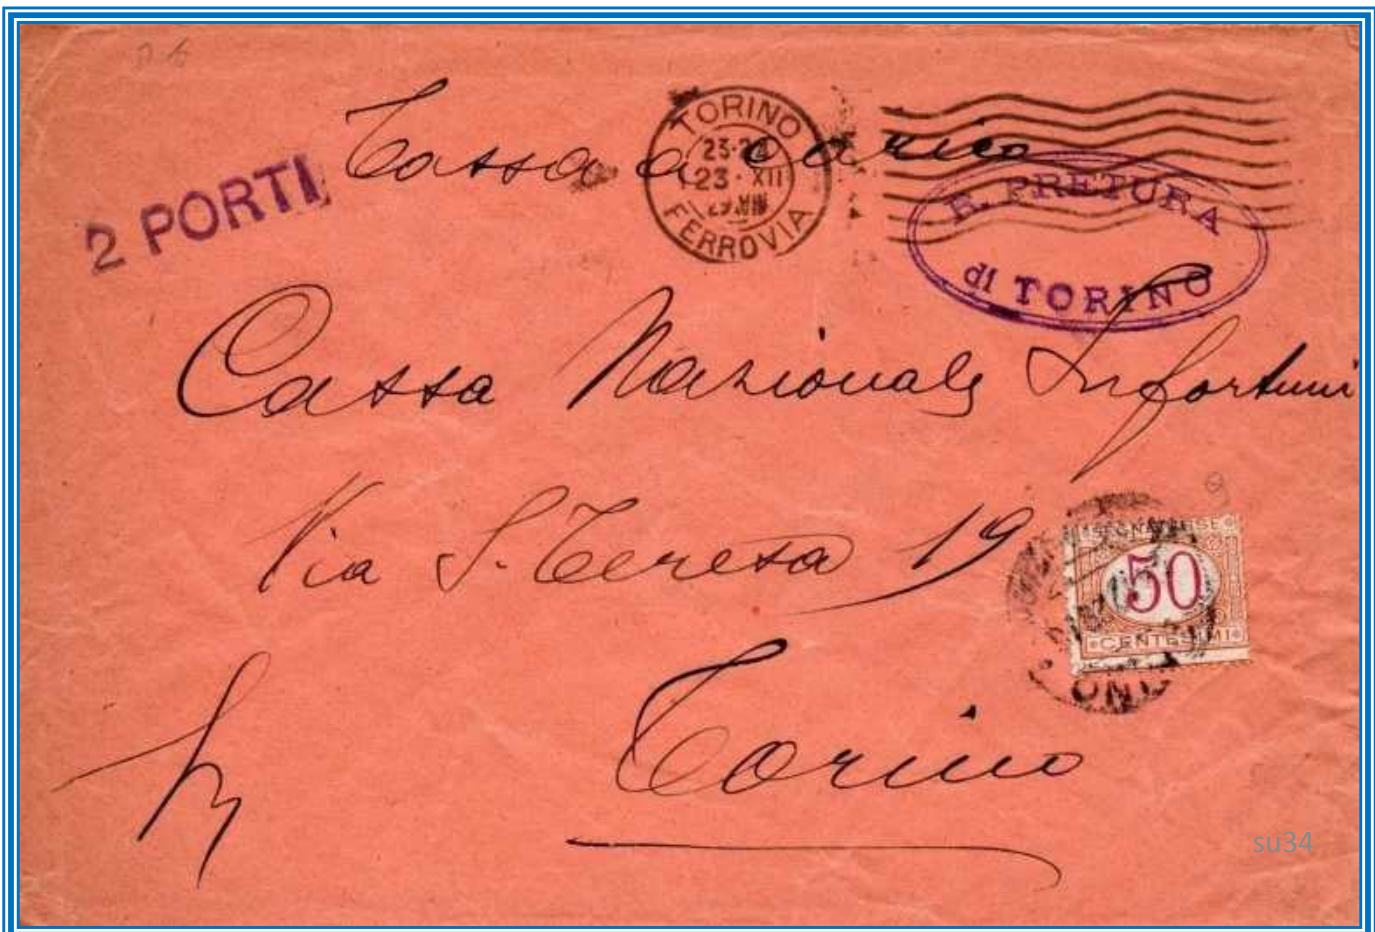 Tassa a carico
2 PORTI
TORINO
23-24
23 · XII
FERROVIA
R. PRETURA
di TORINO
Cassa Nazionale Infortuni
Via S. Teresa 19
SEGNATASSE
50
CENTESIMI
Torino
su34